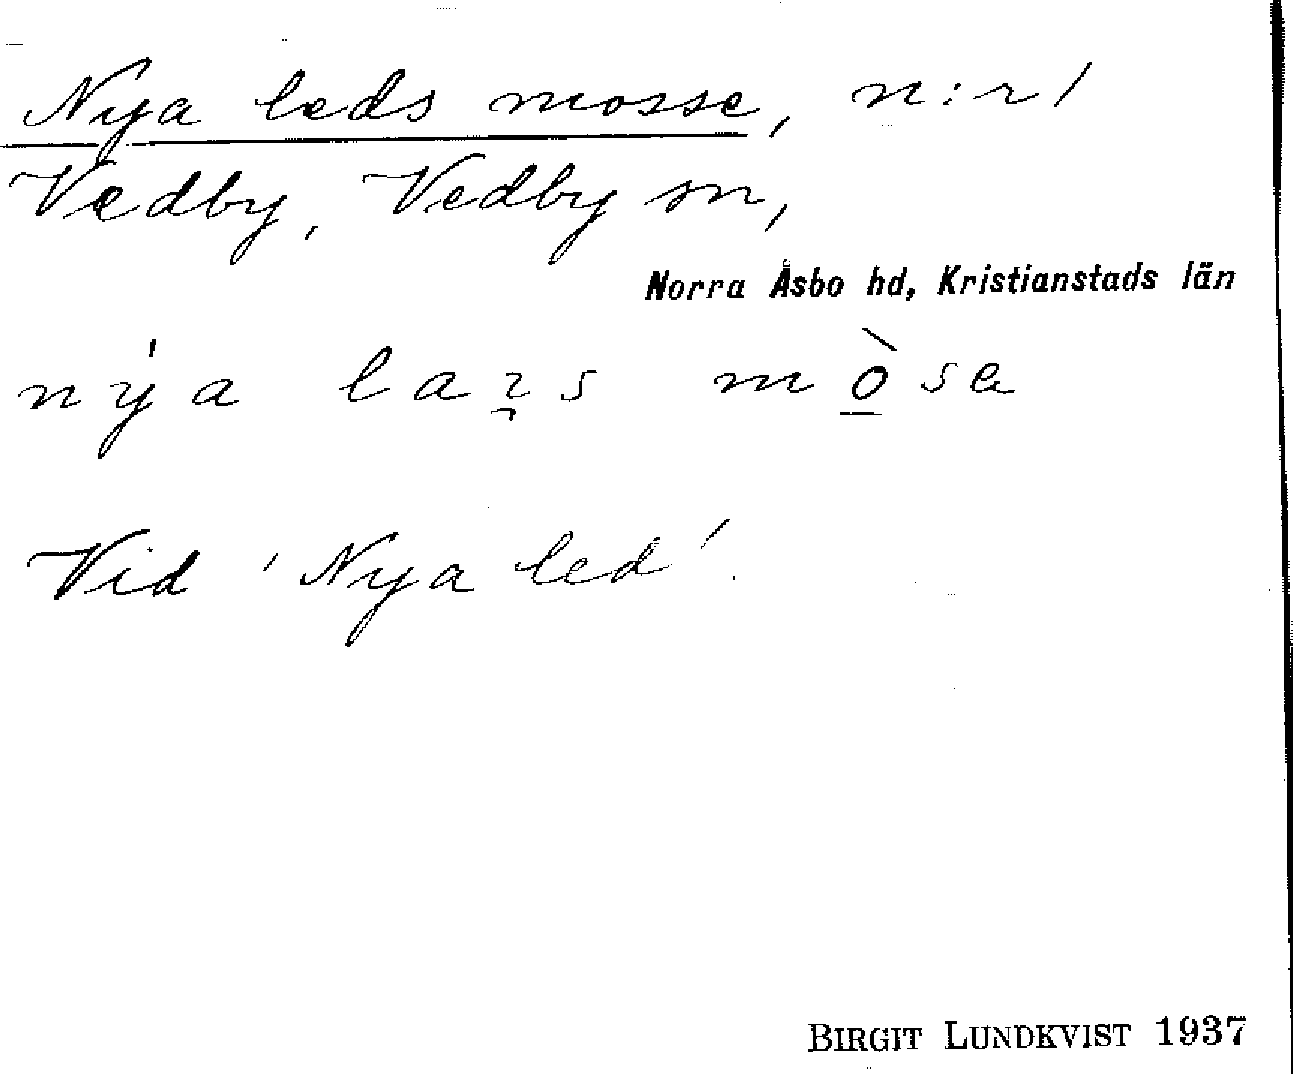 Nya leds mosse, n:r 1
Vedby, Vedby sn,
Norra Åsbo hd, Kristianstads län
nýa mòsa
Vid 'Nya led'.
BIRGIT LUNDKVIST 1937